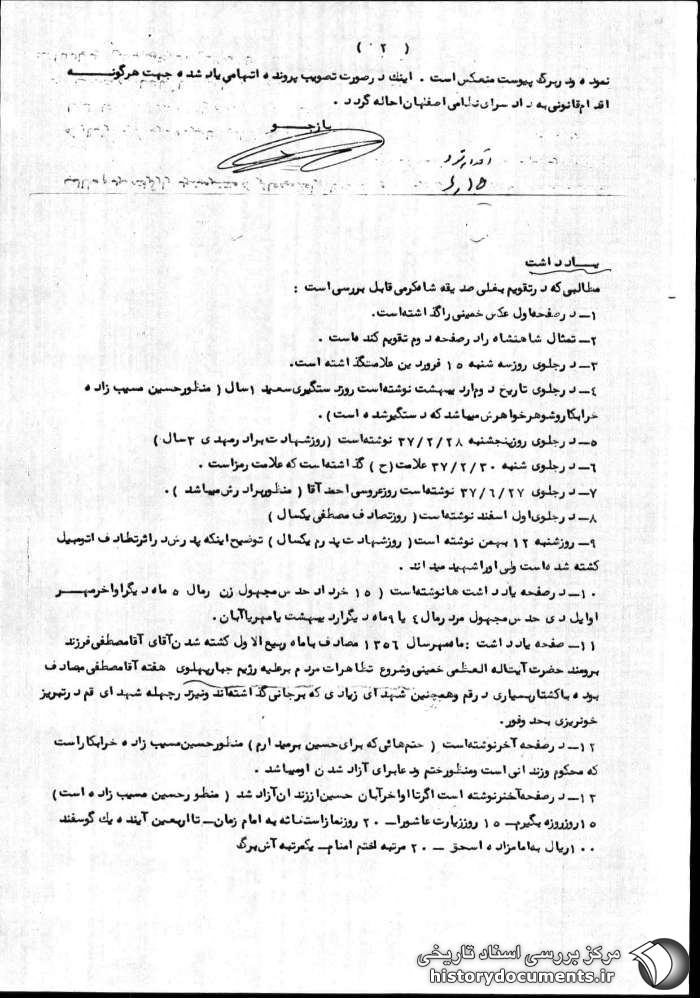 ( ۲ )
نموده ودربرگ پیوست منعکس است . اینك درصورت تصویب پرونده اتهامی یاد شده جهت هرگونه
اقدام قانونی به دادسرای نظامی اصفهان احاله گردد .
بازجو
یادداشت
مطالبی که درتقویم بغلی صدیقه شاه کرمی قابل بررسی است :
۱- درصفحه اول عکس خمینی راگذاشته است.
۲- تمثال شاهنشاه رادرصفحه دوم تقویم کنده است .
۳- درجلوی روزسه شنبه ۱۵ فروردین علامت گذاشته است.
۴- درجلوی تاریخ دوم اردیبهشت نوشته است روزدستگیری سعید ۱سال ( منظورحسین مسیب زاده
خرابکاروشوهرخواهرش میباشد که دستگیرشده است) .
۵- درجلوی روزپنجشنبه ۳۷/۲/۲۸ نوشته است (روزشهادت برادرمهدی ۳سال )
۶- درجلوی شنبه ۳۷/۲/۳۰ علامت (ح ) گذاشته است که علامت رمزاست .
۷- درجلوی ۳۷/۶/۲۷ نوشته است روزعروسی احمد آقا ( منظوربرادرش میباشد ) .
۸- درجلوی اول اسفند نوشته است ( روزتصادف مصطفی یکسال )
۹- روزشنبه ۱۲ بهمن نوشته است ( روزشهادت پدرم یکسال ) توضیح اینکه پدرش دراثرتصادف اتومبیل
کشته شده است ولی اوراشهید میداند .
۱۰- درصفحه یادداشت هانوشته است ( ۱۵ خرداد حدس مجهول زن رمال ۵ ماه دیگراواخرمهر
اوایل دی حدس مجهول مرد رمال ۴ یا ۹ماه دیگراردیبهشت یامهریاآبان .
۱۱- صفحه یادداشت : ماه مهرسال ۱۳۵۶ مصادف باماه ربیع الاول کشته شدن آقای آقامصطفی فرزند
برومند حضرت آیت اله العظمی خمینی وشروع تظاهرات مردم برعلیه رژیم جبارپهلوی هفته آقامصطفی مصادف
بوده باکشتاربسیاری درقم وهمچنین شهدای زیادی که برجانی گذاشته اند ونیزدرچهله شهدای قم درتبریز
خونریزی بحد وفور.
۱۲- درصفحه آخرنوشته است ( ختم هائی که برای حسین برمیدارم ) منظورحسین مسیب زاده خرابکاراست
که محکوم وزندانی است ومنظورختم ودعابرای آزاد شدن اومیباشد .
۱۳- درصفحه آخرنوشته است اگرتااواخرآبان حسین اززندان آزاد شد ( منظورحسین مسیب زاده است)
۱۵روزروزه بگیرم- ۱۵ روززیارت عاشورا- ۲۰ روزنمازاستغاثه به امام زمان- تااربعین آینده یك گوسفند
۱۰۰ریال به امامزاده اسحق - ۲۰ مرتبه اختم امنام- یکمرتبه آش برگ
مرکز بررسی اسناد تاریخی
historydocuments.ir